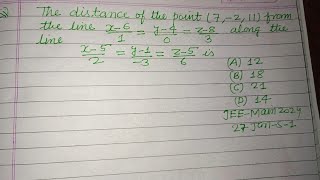 Q) The distance of the point (7,-2,11) from
the line x-6/1 = y-4/0 = z-8/3 along the
line x-5/2 = y-1/-3 = z-5/6 is
(A) 12
(B) 18
(C) 21
(D) 14
JEE-Main 2024
27 Jan-S-1